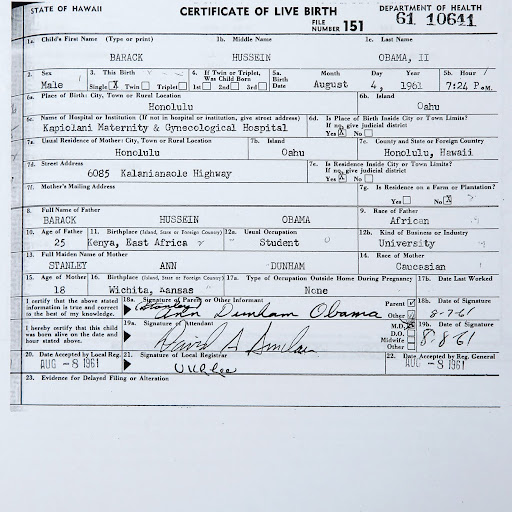 STATE OF HAWAII CERTIFICATE OF LIVE BIRTH DEPARTMENT OF HEALTH
FILE NUMBER 151 61 10641
1a. Child's First Name (Type or print) 1b. Middle Name 1c. Last Name
BARACK HUSSEIN OBAMA, II
2. Sex 3. This Birth 4. If Twin or Triplet, Was Child Born 5a. Birth Date Month Day Year 5b. Hour
Male Single X Twin Triplet 1st 2nd 3rd August 4, 1961 7:24 P.M.
6a. Place of Birth: City, Town or Rural Location 6b. Island
Honolulu Oahu
6c. Name of Hospital or Institution (If not in hospital or institution, give street address) 6d. Is Place of Birth Inside City or Town Limits? If no, give judicial district
Kapiolani Maternity & Gynecological Hospital Yes X No
7a. Usual Residence of Mother: City, Town or Rural Location 7b. Island 7c. County and State or Foreign Country
Honolulu Oahu Honolulu, Hawaii
7d. Street Address 7e. Is Residence Inside City or Town Limits? If no, give judicial district
6085 Kalanianaole Highway Yes X No
7f. Mother's Mailing Address 7g. Is Residence on a Farm or Plantation?
Yes No X
8. Full Name of Father 9. Race of Father
BARACK HUSSEIN OBAMA African
10. Age of Father 11. Birthplace (Island, State or Foreign Country) 12a. Usual Occupation 12b. Kind of Business or Industry
25 Kenya, East Africa Student University
13. Full Maiden Name of Mother 14. Race of Mother
STANLEY ANN DUNHAM Caucasian
15. Age of Mother 16. Birthplace (Island, State or Foreign Country) 17a. Type of Occupation Outside Home During Pregnancy 17b. Date Last Worked
18 Wichita, Kansas None
I certify that the above stated information is true and correct to the best of my knowledge. 18a. Signature of Parent or Other Informant Parent Other 18b. Date of Signature
(Stanley) Ann Dunham Obama 8-7-61
I hereby certify that this child was born alive on the date and hour stated above. 19a. Signature of Attendant M.D. D.O. Midwife Other 19b. Date of Signature
David A 8-8-61
20. Date Accepted by Local Reg. 21. Signature of Local Registrar 22. Date Accepted by Reg. General
AUG -8 1961 AUG -8 1961
23. Evidence for Delayed Filing or Alteration